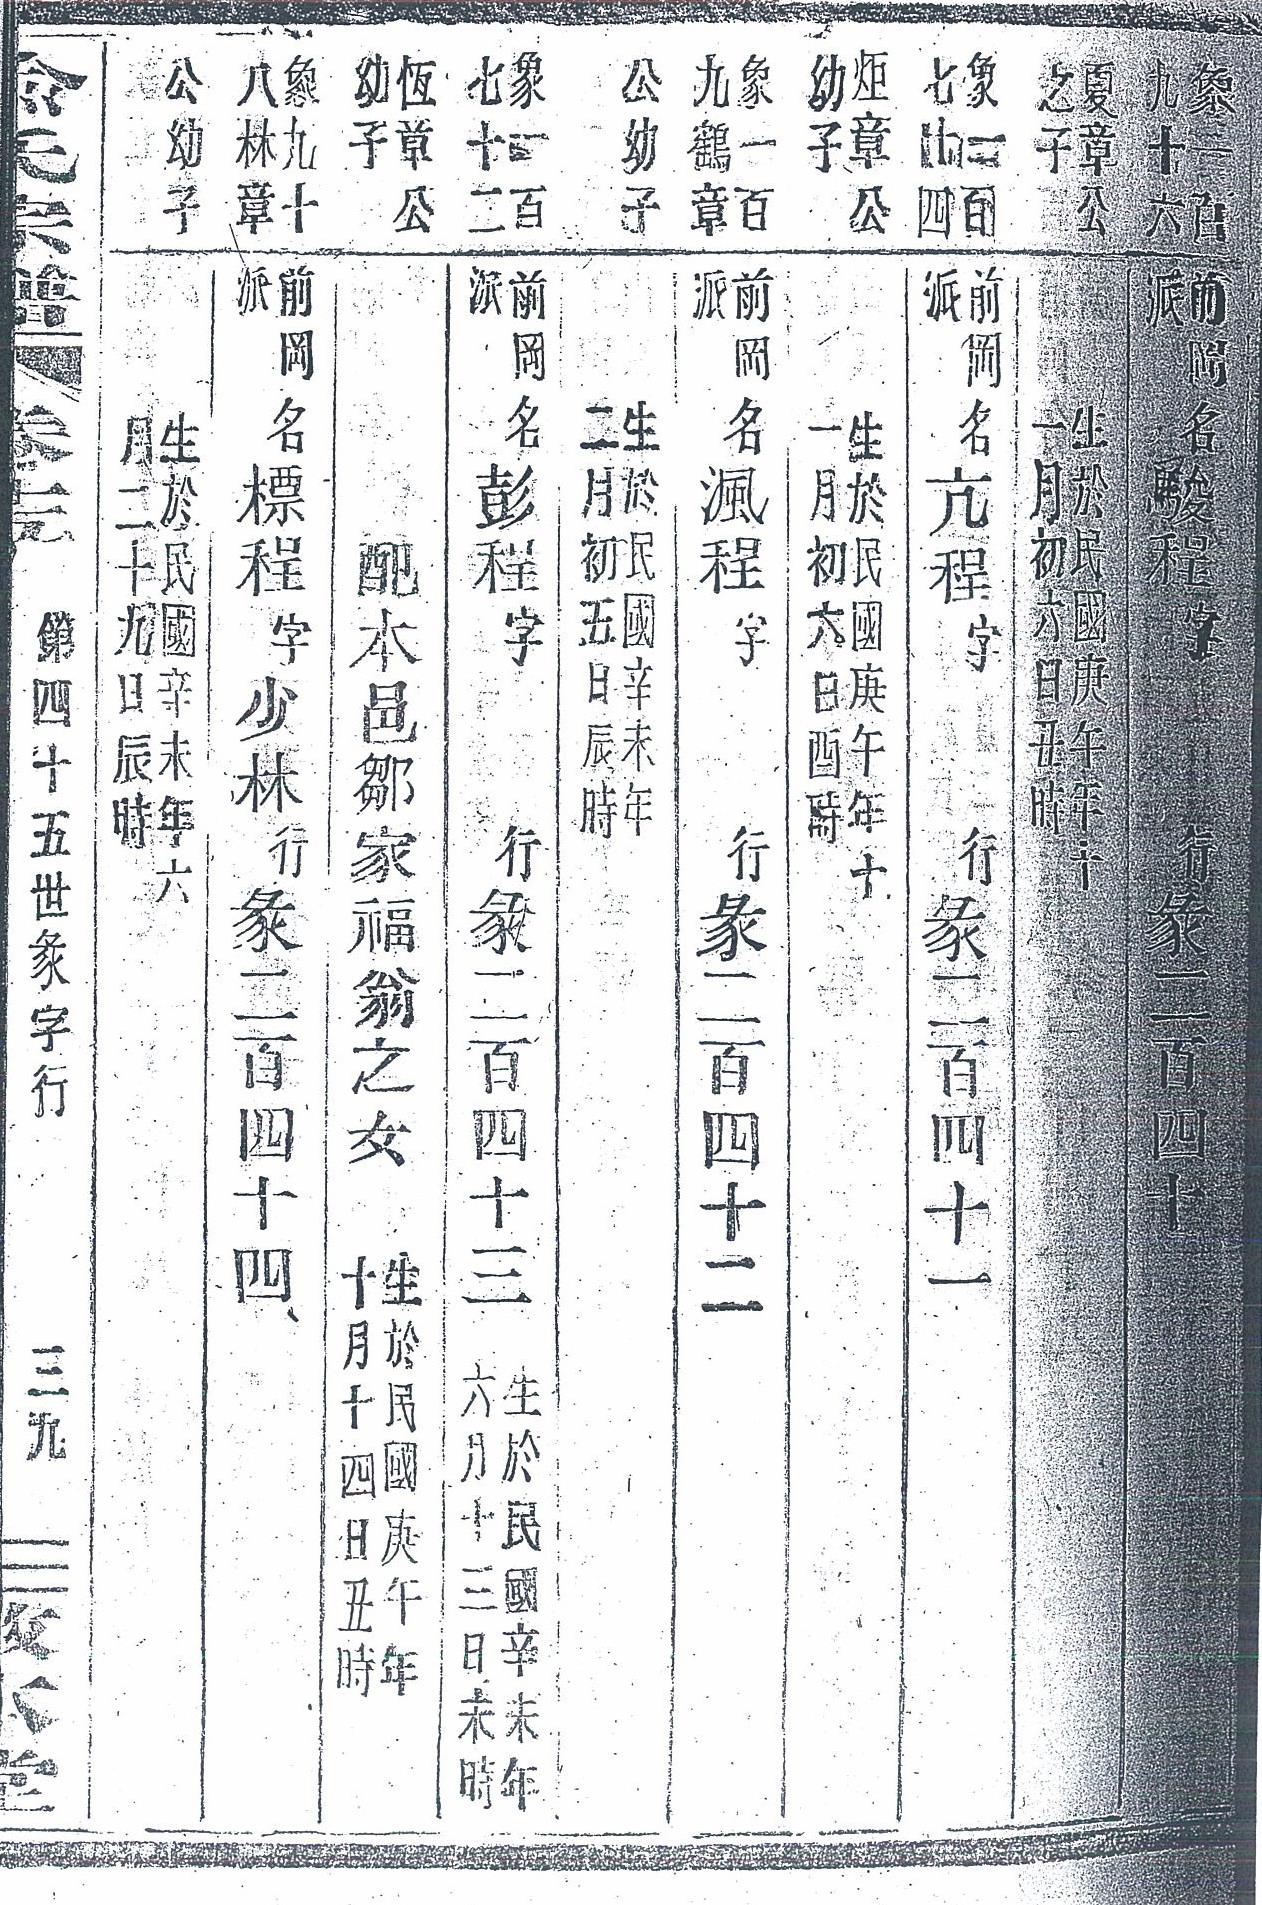 象一百
九十六
前岡
派
名駿程字
行彖二百四十
夏章公
之子
生於民國庚午年十
一月初六日丑時
象一百
七十四
前岡
派
名亢程字
行彖二百四十一
炬章公
幼子
生於民國庚午年十
一月初六日酉時
象一百
九鶴章
前岡
派
名渢程字
行彖二百四十二
公幼子
生於民國辛未年
二月初五日辰時
象一百
七十二
前岡
派
名彭程字
行彖二百四十三
生於民國辛未年
六月十三日未時
恆章公
幼子
配本邑鄒家福翁之女
生於民國庚午年
十月十四日丑時
象九十
八林章
前岡
派
名標程字少林
行彖二百四十四
公幼子
生於民國辛未年六
月二十九日辰時
氏宗譜
卷二
第四十五世彖字行
三九
堂